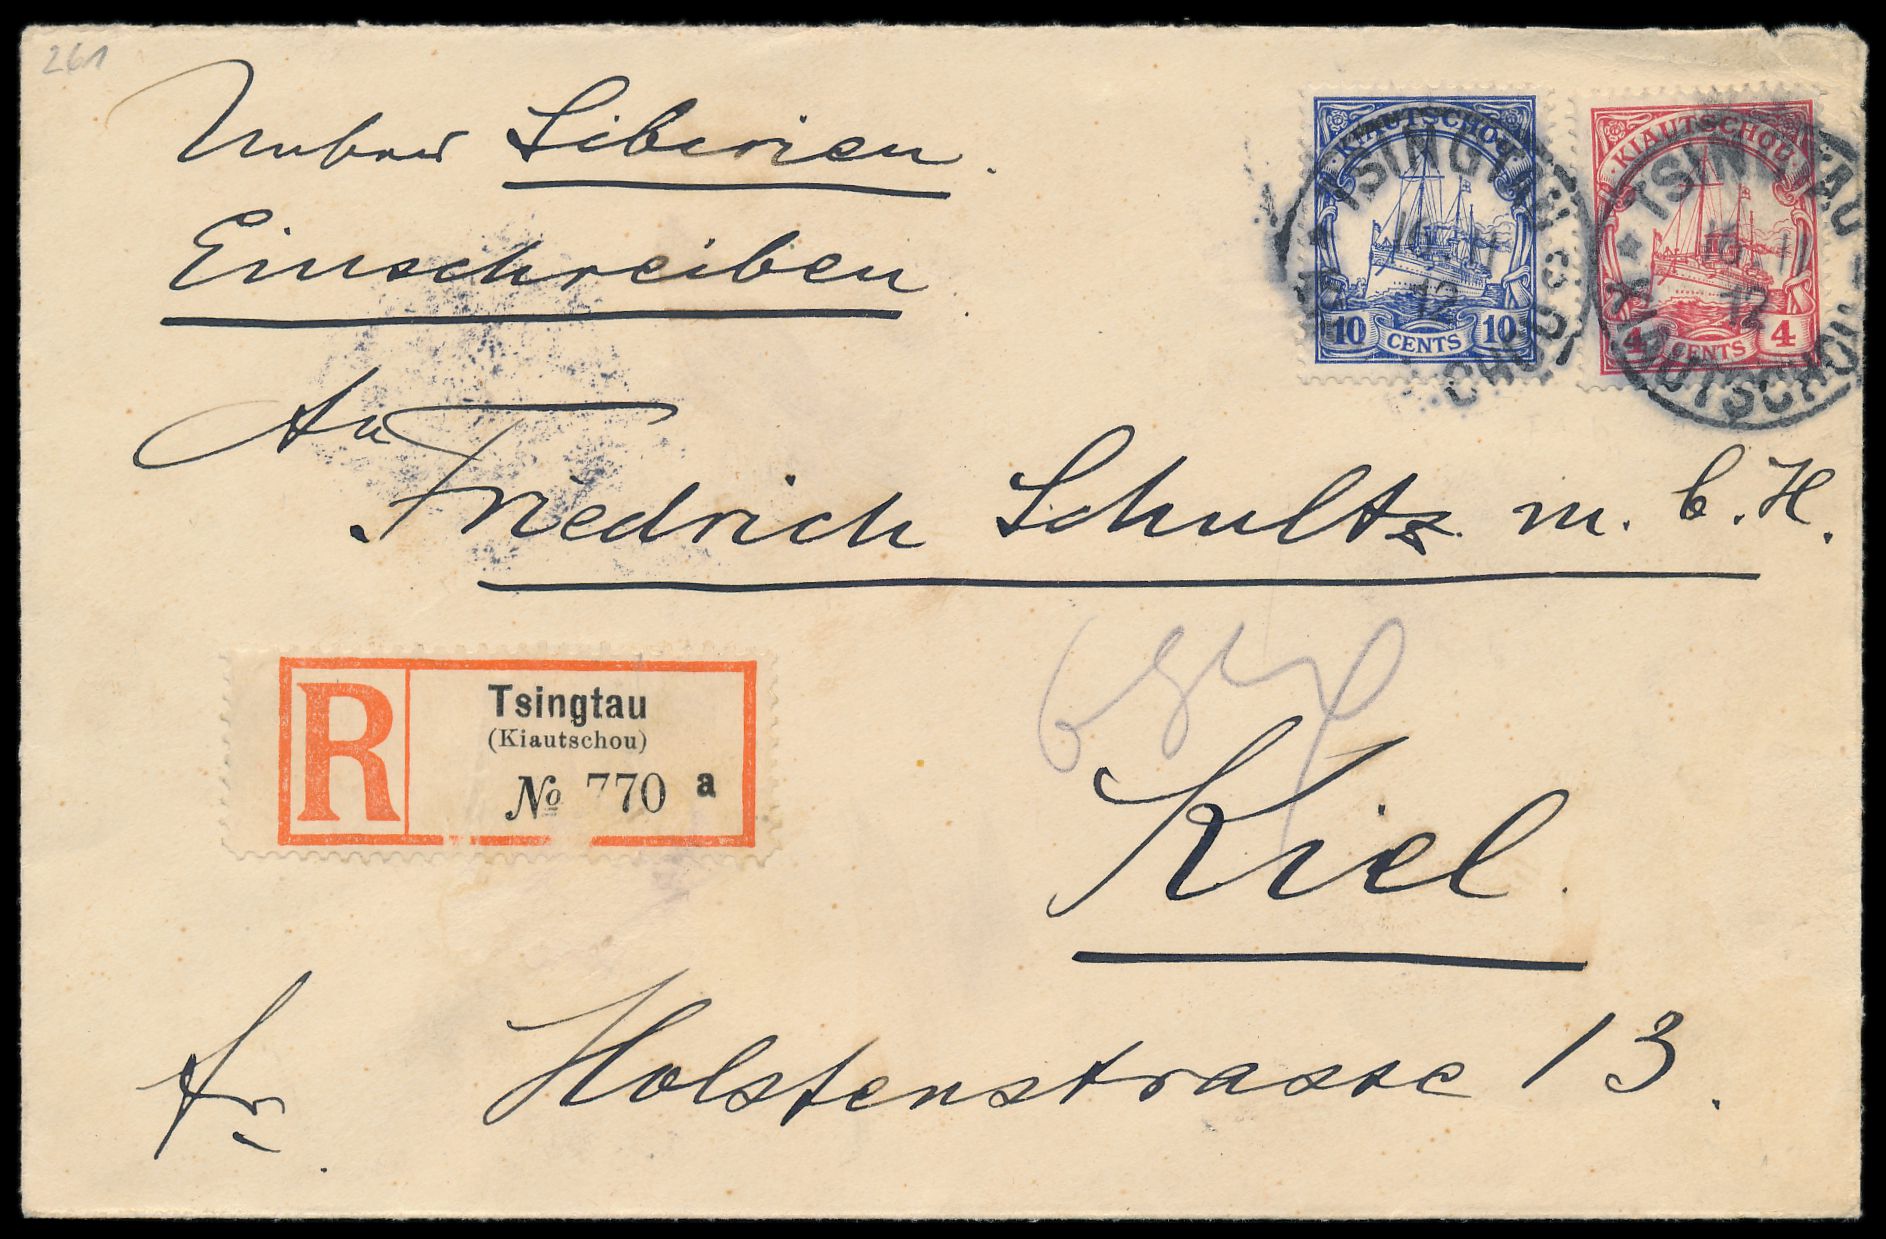 261
Ueber Siberien.
Einschreiben
An
Friedrich Schultz m. b. H.
Kiel.
fr. Holstenstrasse 13.
KIAUTSCHOU
10 CENTS 10
KIAUTSCHOU
4 CENTS 4
TSINGTAU
KIAUTSCHOU
TSINGTAU
KIAUTSCHOU
R
Tsingtau
(Kiautschou)
No 770 a